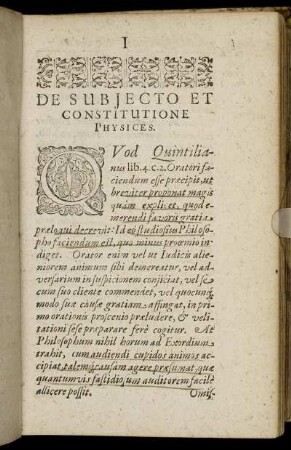 I
DE SUBJECTO ET
CONSTITUTIONE
PHYSICES.
QVod Quintilia-
nus lib. 4. c. 2. Oratori fa-
ciendum esse præcipit, ut
breviter proponat magis
quàm explicet, quo de-
merendi favoris gratia
præloqui decrevit: Id eò studiosius Philoso-
pho faciendum est, quo minus proœmio in-
diget. Orator enim vel ut Iudicis alie-
niorem animum sibi demereatur, vel ad-
versarium in suspicionem conjiciat, vel se-
cum suo cliente commendet, vel quocunq;
modo suæ causæ gratiam affingat, in pri-
mo orationis proscenio præludere, & veli-
tationi sese præparare ferè cogitur. At
Philosophum nihil horum ad Exordium
trahit, cum audiendi cupidos animos ac-
cipiat, talemq; causam agere præsumat, quæ
quantumvis fastidiosum auditorem facilè
allicere possit.
Omis-